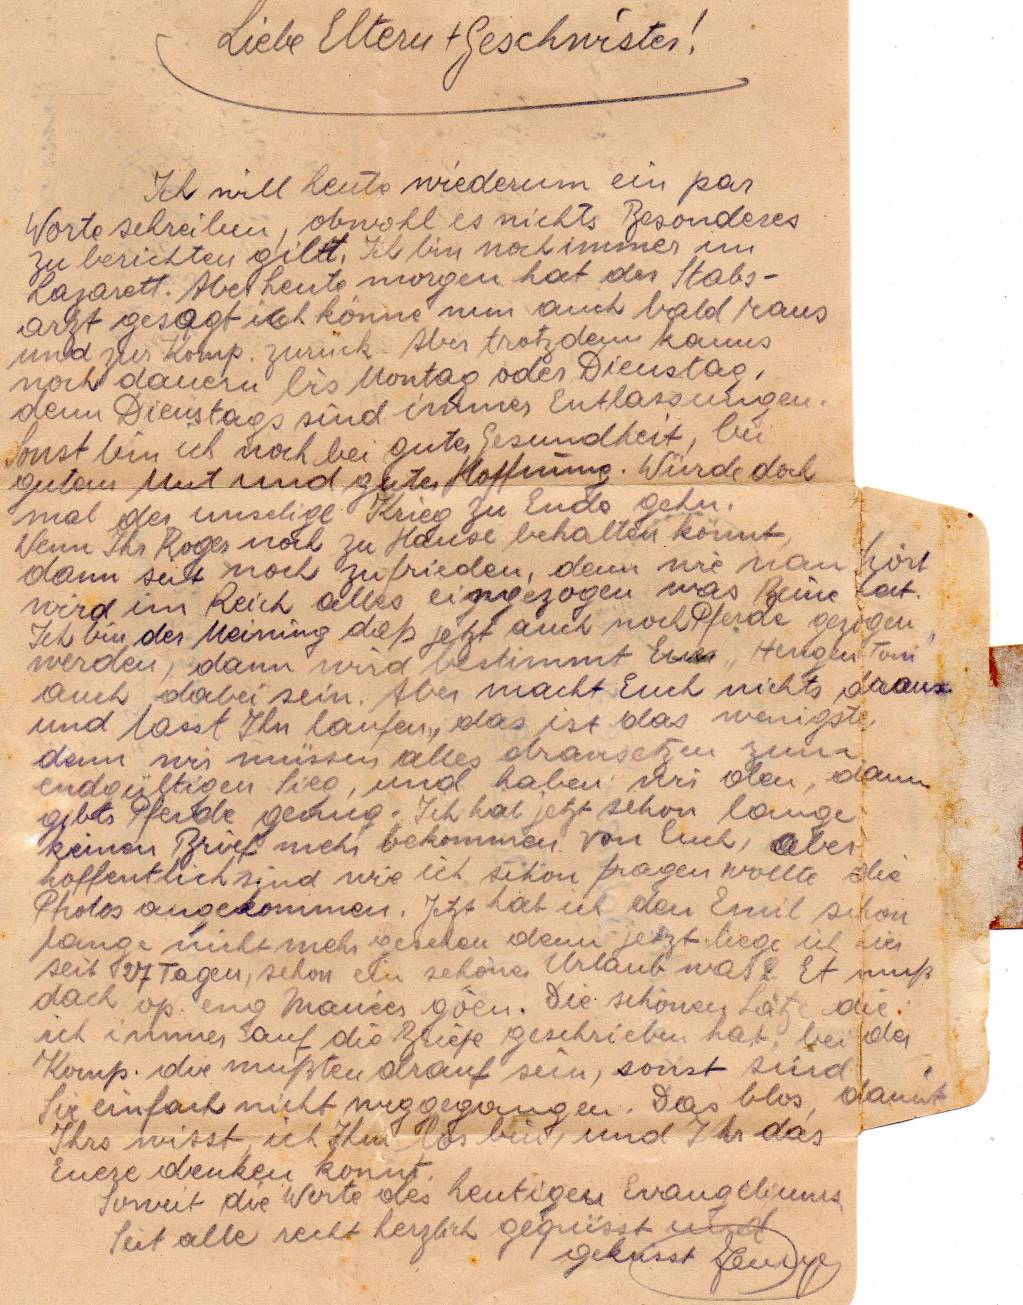 Liebe Eltern + Geschwister!
Ich will heute wiederum ein par
Worte schreiben, obwohl es nichts Besonderes
zu berichten gibt. Ich bin noch immer im
Lazarett. Aber heute morgen hat der Stabs-
arzt gesagt ich könne nun auch bald raus
und zur Komp. zurück. Aber trotzdem kanns
noch dauern bis Montag oder Dienstag,
denn Dienstags sind immer Entlassungen.
Sonst bin ich noch bei guter Gesundheit, bei
gutem Mut und guter Hoffnung. Würde doch
mal der unselige Krieg zu Ende gehn.
Wenn Ihr Roger noch zu Hause behalten könnt,
dann seit noch zufrieden, denn wie man hört
wird im Reich alles eingezogen was Beine hat.
Ich bin der Meinung daß jetzt auch noch Pferde gezogen
werden, dann wird bestimmt Euer „Hengen Toni"
auch dabei sein. Aber macht Euch nichts draus
und lasst Ihn laufen, das ist das wenigste,
denn wir müssen alles dransetzen zum
endgültigen Sieg, und haben wir den, dann
gibts Pferde genug. Ich hab jetzt schon lange
keinen Brief mehr bekommen von Euch, aber
hoffentlich sind wie ich schon fragen wollte die
Photos angekommen. Jetzt hab ich den Emil schon
lange nicht mehr gesehen denn jetzt liege ich hier
seit 27 Tagen, schon ein schöner Urlaub was? Et muß
dach op eng Manéer goen. Die schönen Sätze die
ich immer auf die Briefe geschrieben hab, bei der
Komp. die mußten drauf sein, sonst sind
Sie einfach nicht weggegangen. Das blos, damit
Ihrs wisst, ich Ihn los bin, und Ihr das
Euere denken könnt.
Soweit die Worte des heutigen Evangeliums
Seit alle recht herzlich gegrüsst und
geküsst